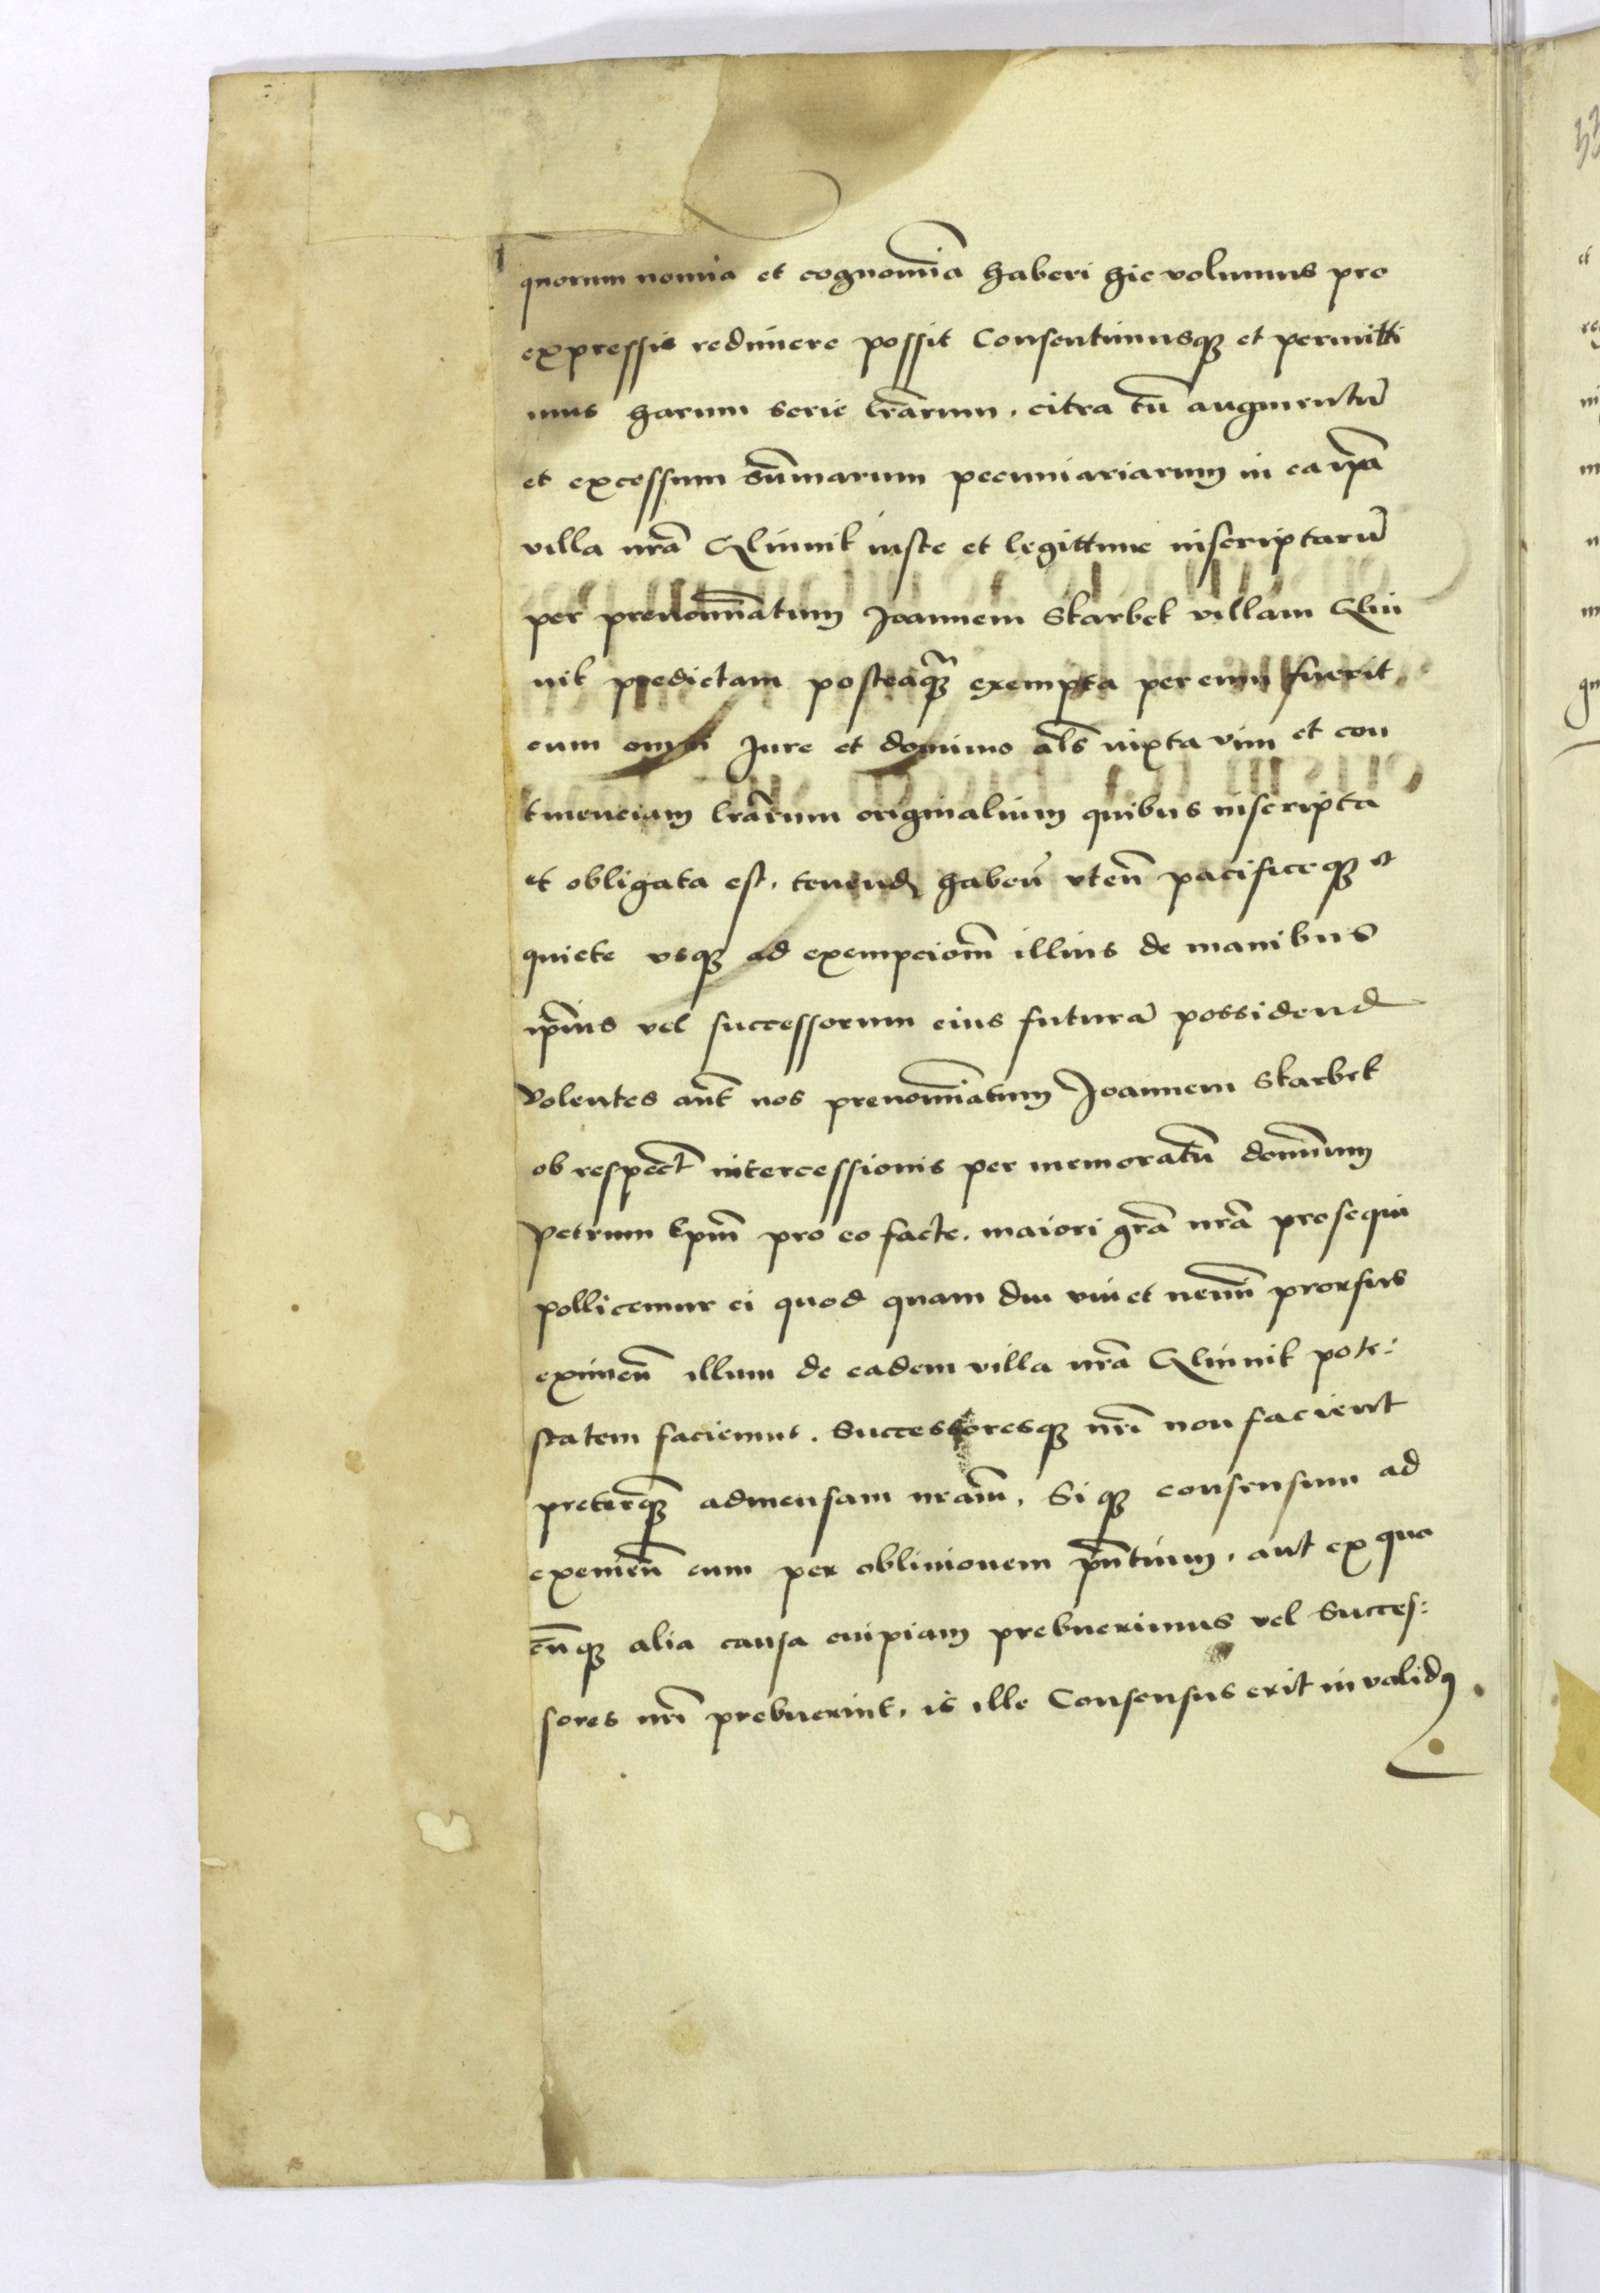 quorum nomia et cognomia haberi hic volumus pro
expressis redimere possit Consentimusq et permitti
mus harum serie lrarum. citra tn augmentu
et excessum summarum pecuniariarum in ea ipa
villa nra Glinnik iuste et legittime inscriptaru
per prenominatum Joannem Skarbek villam Glin
nik predictam posteaq exempta per eum fuerit
cum omni Jure et dominio als iuxta vim et con
tinenciam lrarum originalium quibus inscripta
et obligata est. tenend haben vten pacificeq et
quiete vsq ad exempcionem illius de manibus
ipius vel successorum eius futura possidend
Volentes aut nos prenominatum Joannem Skarbek
ob respect intercessionis per memoratu dominum
Petrum Epm pro eo facte. maiori gra nra prosequi
pollicemur ei quod quam diu viuet nemini prorsus
eximen illum de eadem villa nra Glinnik pote:
statem faciemus. Successoresq nri non facient
preterq ad mensam nram. Si q consensum ad
eximen eum per obliuionem pntium. aut ex qua
cunq alia causa cuipiam prebuerimus vel Succes:
sores nri prebuerint. is ille Consensus erit inualidus.